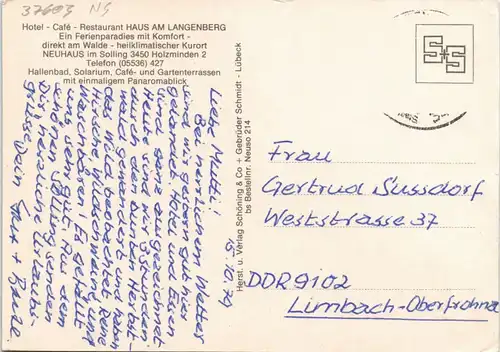 37603 NS
Hotel - Café - Restaurant HAUS AM LANGENBERG
Ein Ferienparadies mit Komfort -
direkt am Walde - heilklimatischer Kurort
NEUHAUS im Solling 3450 Holzminden 2
Telefon (05536) 427
Hallenbad, Solarium, Café- und Gartenterrassen
mit einmaligem Panaromablick
15.10.79
Liebe Mutti!
Bei herrlichem Wetter
sind wir gestern gut hier
gelandet. Hotel und Essen
sind ganz ausgezeichnet
Heute sind wir
durch den bunten Herbst-
wald gewandert und haben
das Wild beobachtet Rehe
Hirsche, Wildschweine und
Waschbären! Es gefällt
uns sehr gut. Aus dem
schönen Solling senden
Dir herzliche Urlaubs-
grüsse Dein
Herst. u. Verlag Schöning & Co + Gebrüder Schmidt - Lübeck
bs Bestellnr. Neuso 214
S+S
Frau
Gertrud Sussdorf
Weststrasse 37
DDR 9102
Limbach-Oberfrohna